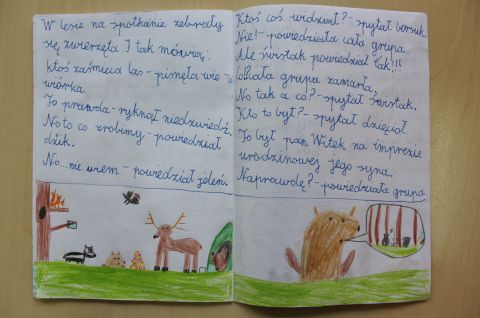 W lesie na spotkanie zebrały
się zwierzęta. I tak mówią:
ktoś zaśmieca las - pisnęła wie -
wiórka.
To prawda - ryknął niedźwiedź.
No to co zrobimy - powiedział
dzik.
No... nie wiem - powiedział jeleń.
Ktoś coś widział? - spytał borsuk.
Nie! - powiedziała cała grupa.
Ale świstak powiedział tak!!!
Cała grupa zamarła,
No tak a co? - spytał świstak.
Kto to był? - spytał dzięcioł.
To był pan Witek na imprezie
urodzinowej jego syna.
Naprawdę? - powiedziała grupa.